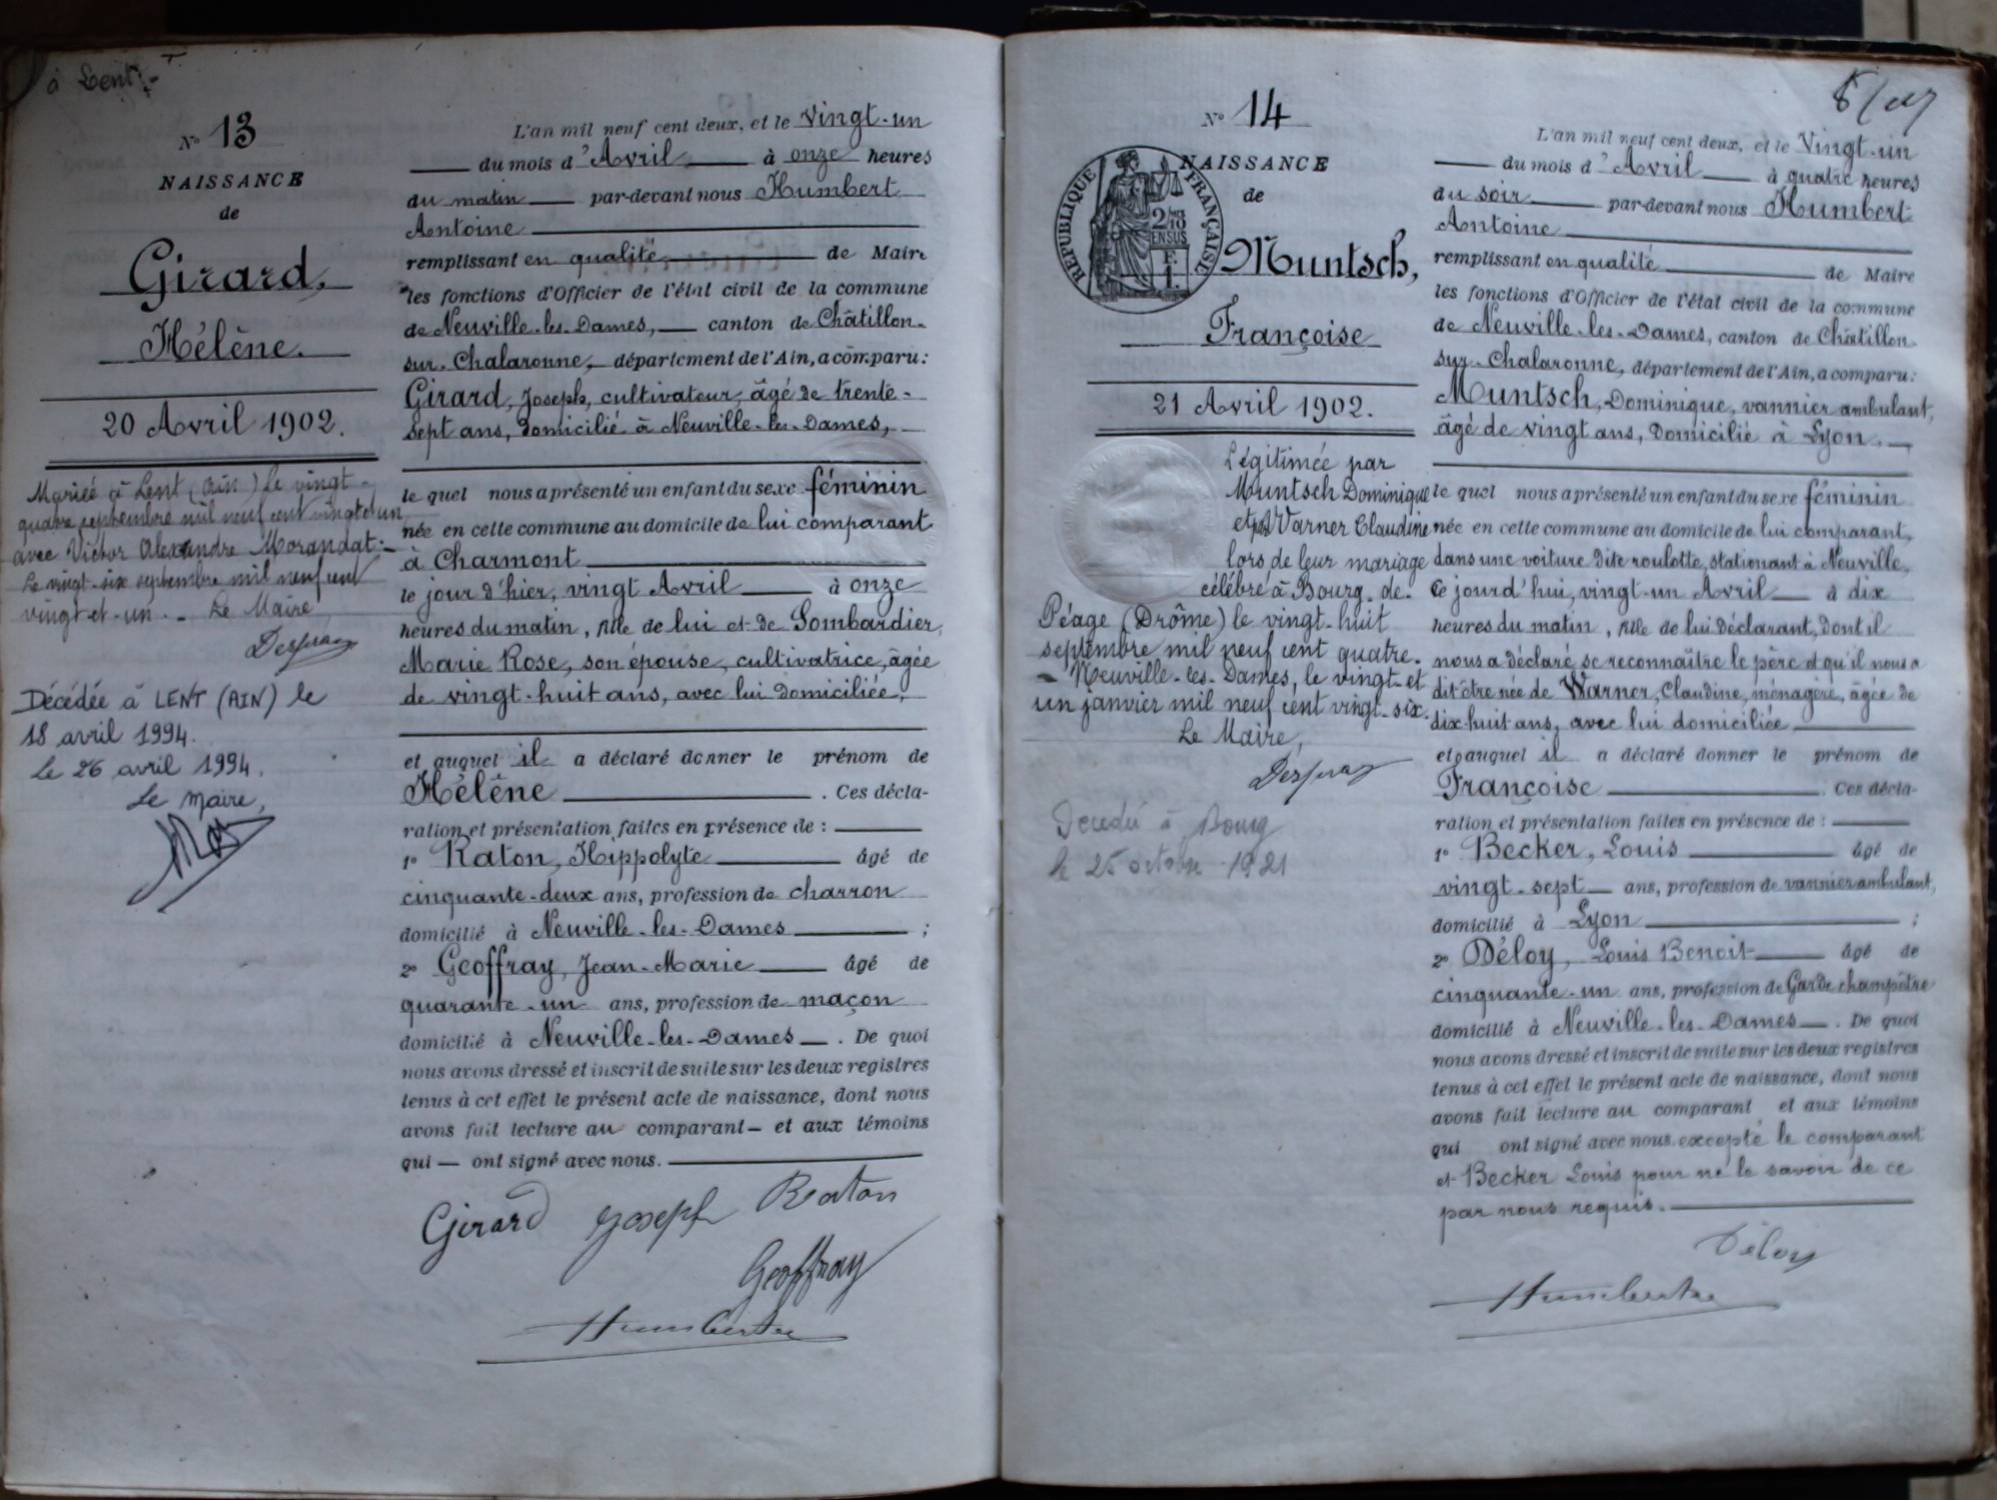 à Lent
N° 13
NAISSANCE
de
Girard,
Hélène.
20 Avril 1902.
Mariée à Lent (Ain) le vingt-
quatre septembre mil neuf cent vingt et un
avec Victor Alexandre Morandat.
Le vingt-six septembre mil neuf cent
vingt-et-un. Le Maire
Décédée à LENT (AIN) le
18 avril 1994.
le 26 avril 1994.
Le maire,
L'an mil neuf cent deux, et le Vingt-un
du mois d'Avril à onze heures
du matin par-devant nous Humbert
Antoine
remplissant en qualité de Maire
les fonctions d'Officier de l'état civil de la commune
de Neuville-les-Dames, canton de Châtillon-
sur-Chalaronne, département de l'Ain, a comparu:
Girard, Joseph, cultivateur, âgé de trente-
sept ans, domicilié à Neuville-les-Dames,
le quel nous a présenté un enfant du sexe féminin
née en cette commune au domicile de lui comparant
à Charmont
le jour d'hier, vingt Avril à onze
heures du matin, fille de lui et de Gombardier,
Marie Rose, son épouse, cultivatrice, âgée
de vingt-huit ans, avec lui domiciliée,
et auquel il a déclaré donner le prénom de
Hélène . Ces décla-
ration et présentation faites en présence de :
1° Raton, Hippolyte âgé de
cinquante-deux ans, profession de charron
domicilié à Neuville-les-Dames ;
2° Geoffray, Jean-Marie âgé de
quarante-un ans, profession de maçon
domicilié à Neuville-les-Dames . De quoi
nous avons dressé et inscrit de suite sur les deux registres
tenus à cet effet le présent acte de naissance, dont nous
avons fait lecture au comparant et aux témoins
qui ont signé avec nous.
Girard Joseph Raton
Geoffray
Humbert
N° 14
NAISSANCE
de
RÉPUBLIQUE FRANÇAISE
Muntsch,
Françoise
21 Avril 1902.
Légitimée par
Muntsch Dominique
et Warner Claudine
lors de leur mariage
célébré à Bourg-de-
Péage (Drôme) le vingt-huit
septembre mil neuf cent quatre.
Neuville-les-Dames, le vingt-et
un janvier mil neuf cent vingt-six.
Le Maire,
Décédé à Bourg
le 25 octobre 1921
L'an mil neuf cent deux, et le Vingt-un
du mois d'Avril à quatre heures
du soir par-devant nous Humbert
Antoine
remplissant en qualité de Maire
les fonctions d'Officier de l'état civil de la commune
de Neuville-les-Dames, canton de Châtillon-
sur-Chalaronne, département de l'Ain, a comparu:
Muntsch, Dominique, vannier ambulant,
âgé de vingt ans, domicilié à Lyon.
le quel nous a présenté un enfant du sexe féminin
née en cette commune au domicile de lui comparant,
dans une voiture dite roulotte, stationant à Neuville,
Ce jourd'hui, vingt-un Avril à dix
heures du matin, fille de lui déclarant, dont il
nous a déclaré se reconnaître le père et qu'il nous a
dit être née de Warner, Claudine, ménagère, âgée de
dix-huit ans, avec lui domiciliée
et auquel il a déclaré donner le prénom de
Françoise . Ces décla-
ration et présentation faites en présence de :
1° Becker, Louis âgé de
vingt-sept ans, profession de vannier ambulant,
domicilié à Lyon ;
2° Déloy, Louis Benoit âgé de
cinquante-un ans, profession de Garde champêtre
domicilié à Neuville-les-Dames . De quoi
nous avons dressé et inscrit de suite sur les deux registres
tenus à cet effet le présent acte de naissance, dont nous
avons fait lecture au comparant et aux témoins
qui ont signé avec nous excepté le comparant
et Becker Louis pour ne le savoir de ce
par nous requis.
Déloy
Humbert